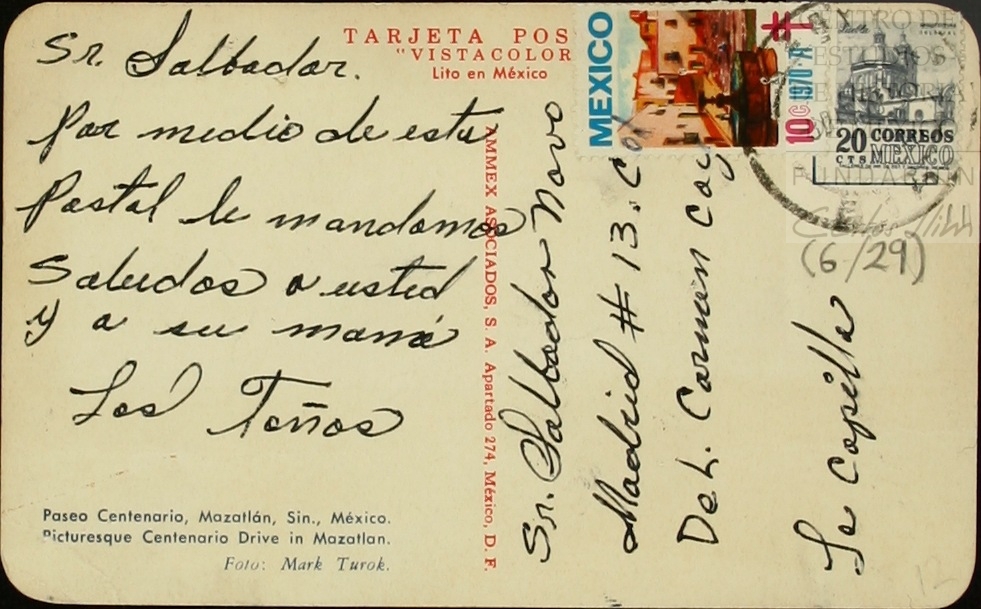 Sr. Salbador.
Por medio de esta
Postal le mandamos
Saludos a usted
y a su mamá
Los Toños
Paseo Centenario, Mazatlán, Sin., México.
Picturesque Centenario Drive in Mazatlan.
Foto: Mark Turok.
TARJETA POS
"VISTACOLOR
Lito en México
AMMEX ASOCIADOS, S. A. Apartado 274, México, D. F.
MEXICO
10c 1970-71
20 CTS CORREOS MEXICO
CENTRO DE
ESTUDIOS
DE HISTORIA
DE
FUNDACIÓN
Carlos Slim
(6/29)
Sr. Salbador Novo
Madrid # 13. Col
De L. Carmen Coy
La Capilla
12